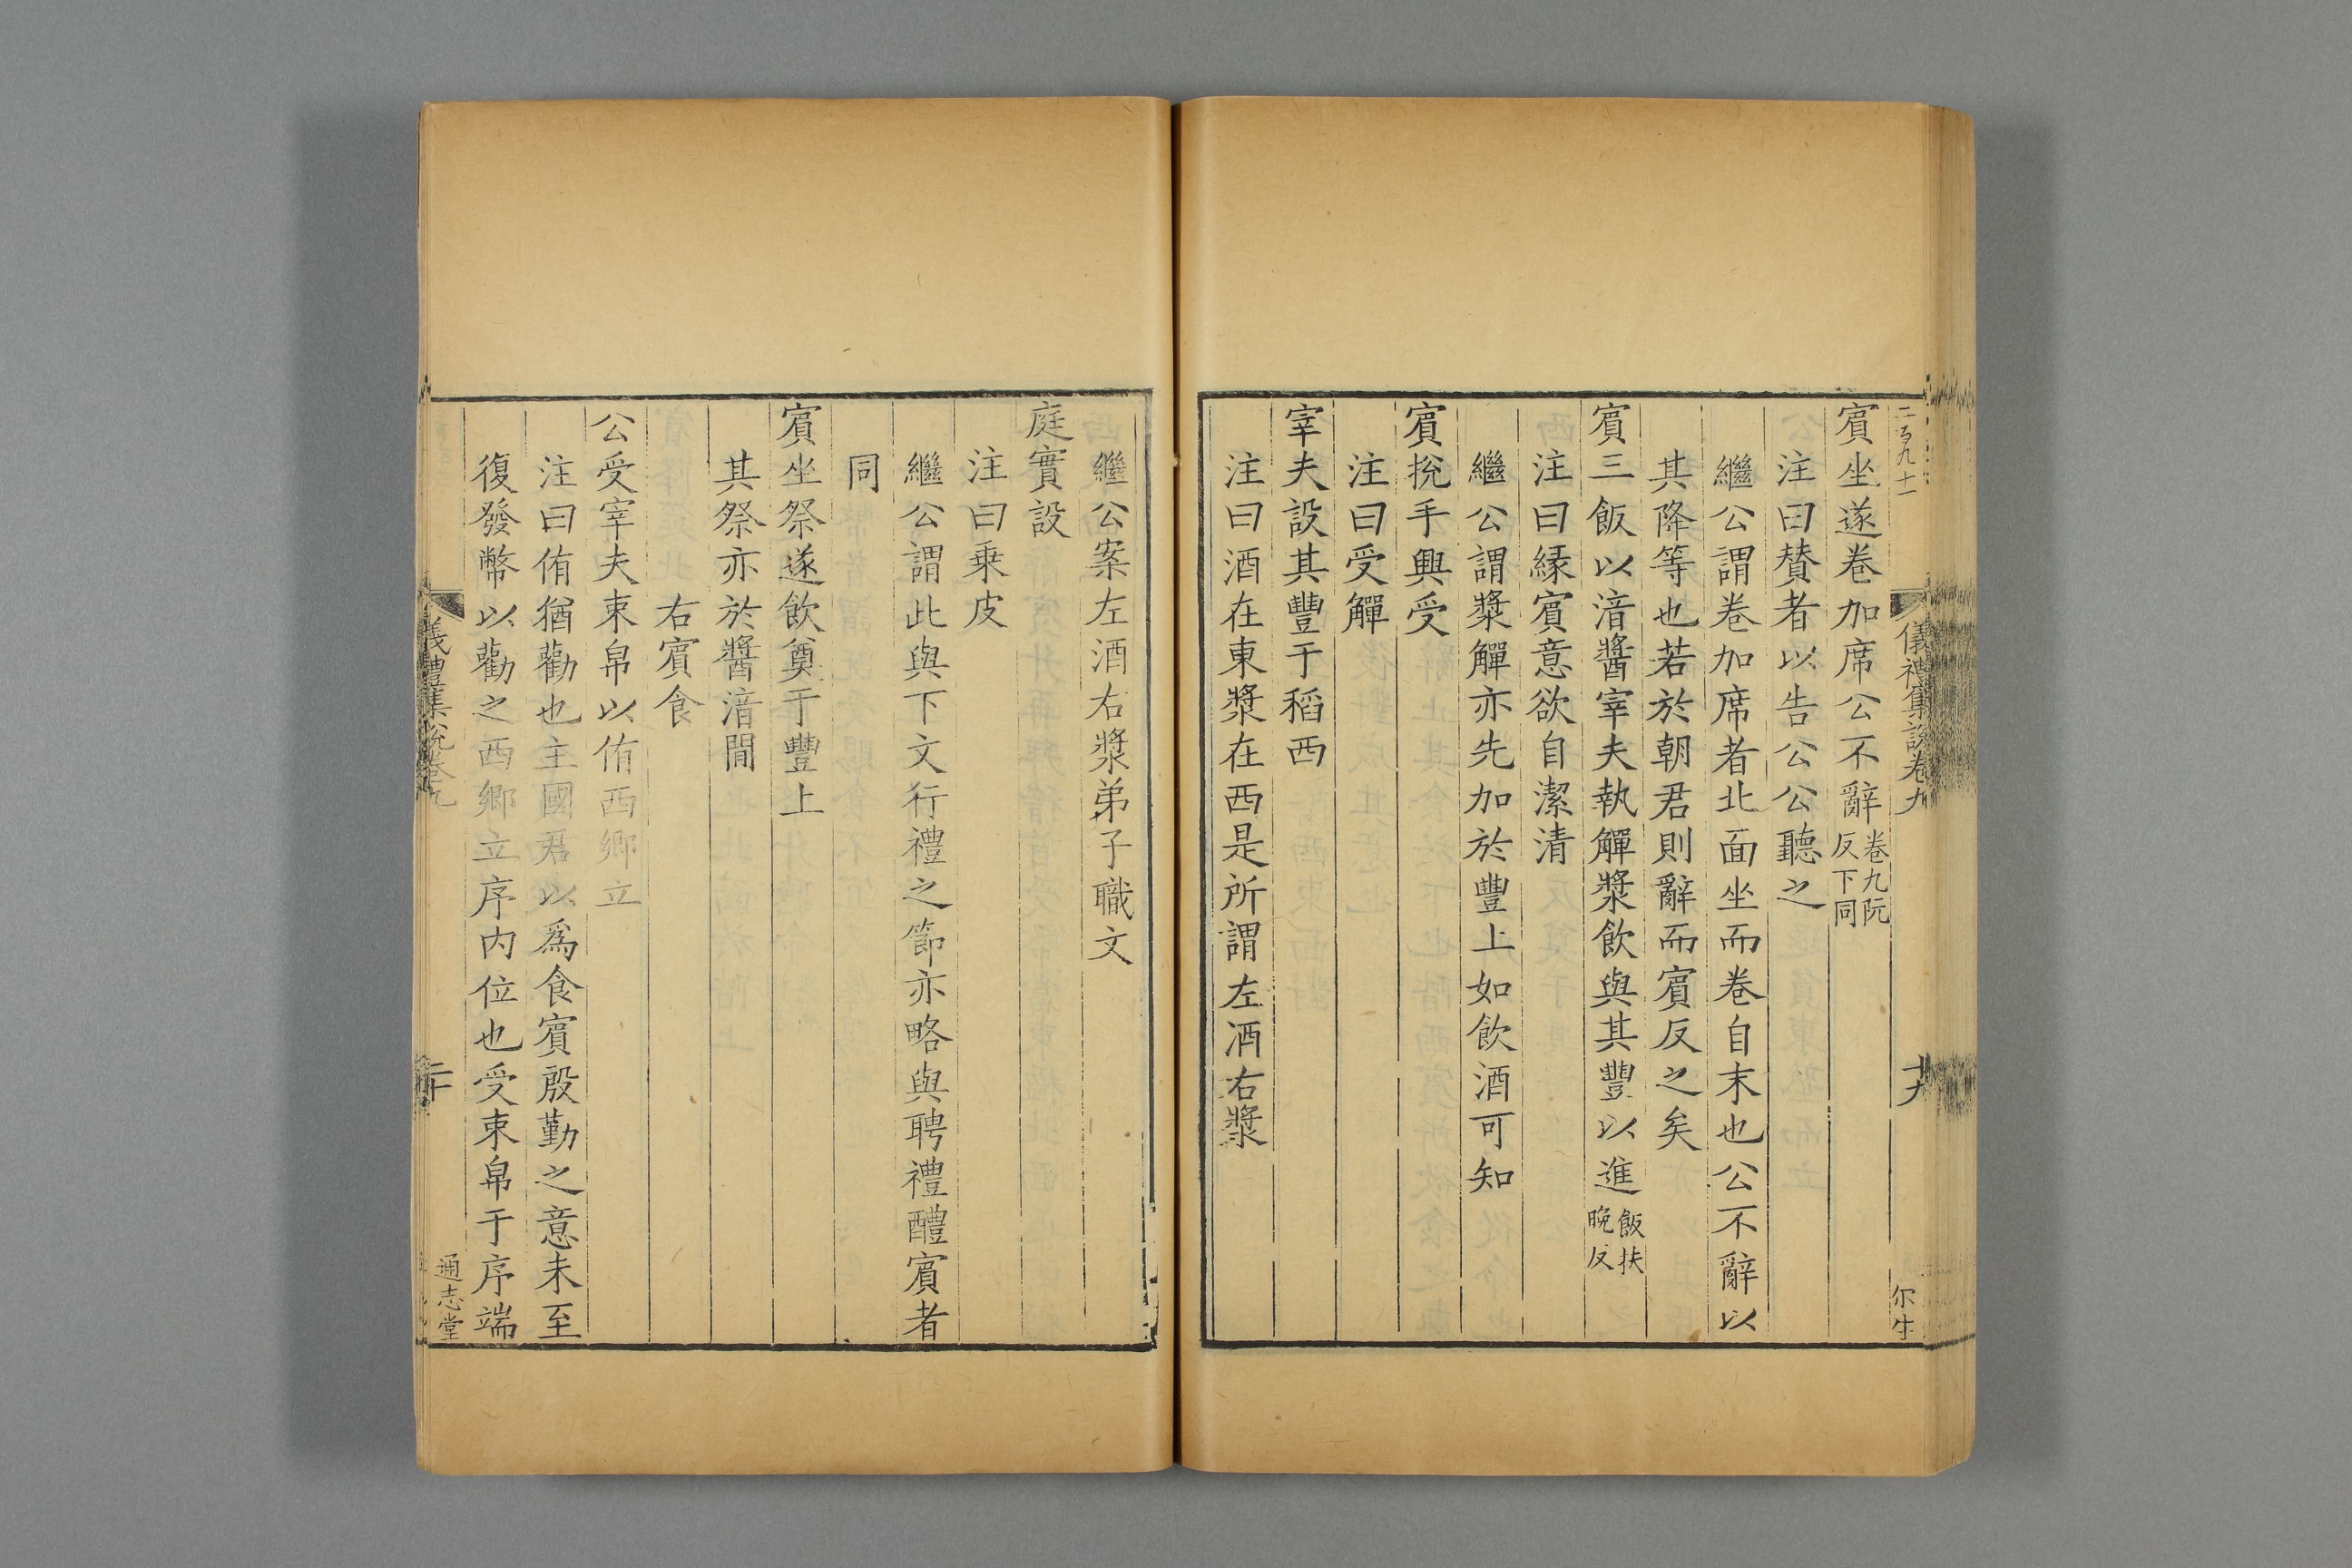 二百九十一
儀禮集説卷九
十九
尔生
賔坐遂卷加席公不辭卷九阮反下同
注曰賛者以告公公聽之
繼公謂卷加席者北面坐而卷自末也公不辭以
其降等也若於朝君則辭而賔反之矣
賔三飯以湆醬宰夫執觶漿飲與其豐以進飯扶晚反
注曰縁賔意欲自潔清
繼公謂漿觶亦先加於豐上如飲酒可知
賔挩手興受
注曰受觶
宰夫設其豐于稻西
注曰酒在東漿在西是所謂左酒右漿
繼公案左酒右漿弟子職文
庭實設
注曰乗皮
繼公謂此與下文行禮之節亦略與聘禮醴賔者
同
賔坐祭遂飲奠于豐上
其祭亦於醬湆間
右賔食
公受宰夫束帛以侑西鄉立
注曰侑猶勸也主國君以爲食賔殷勤之意未至
復發幣以勸之西鄉立序内位也受束帛于序端
儀禮集説卷九
二十
通志堂